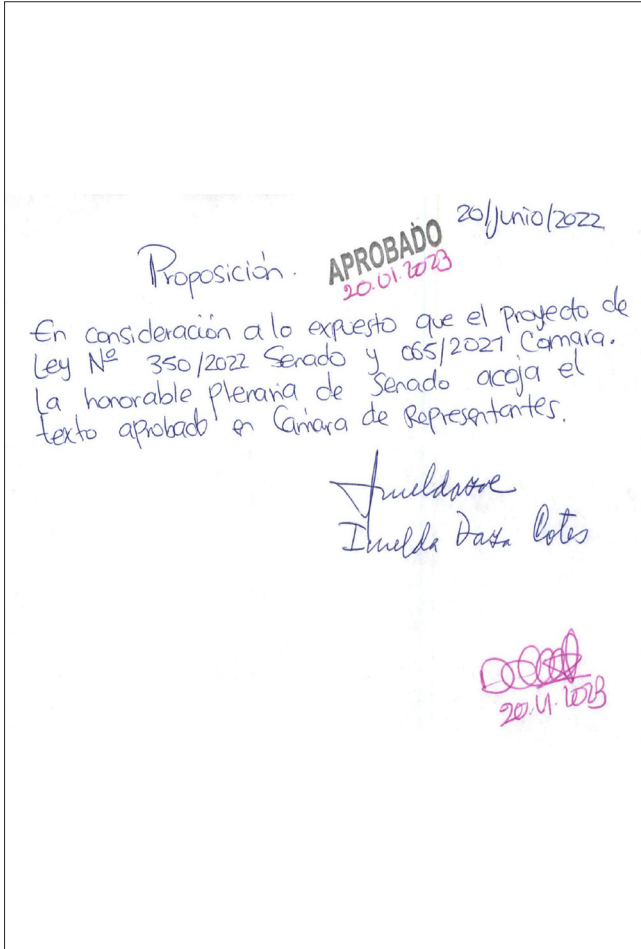 20/Junio/2022
Proposición. APROBADO
20.01.2023
En consideración a lo expuesto que el proyecto de
Ley Nº 350/2022 Senado y 065/2021 Camara.
La honorable Plenaria de Senado acoja el
texto aprobado en Cámara de Representantes.
Imelda Daza Cotes